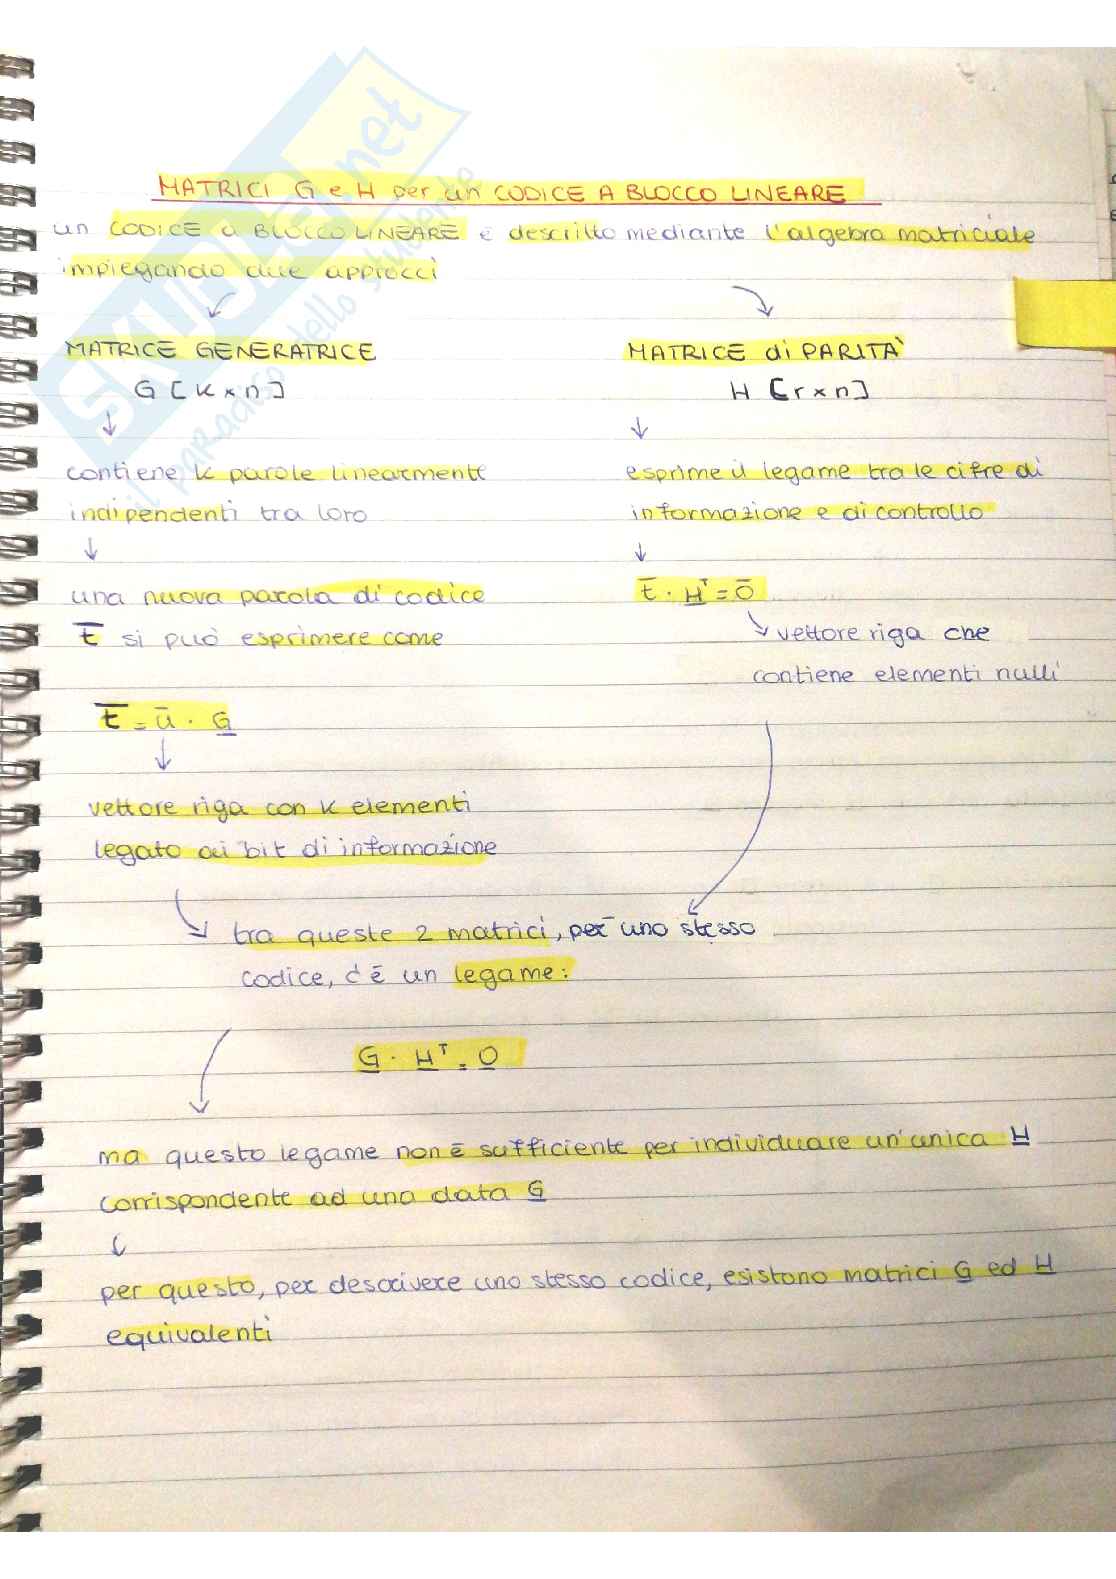 MATRICI G e H per un CODICE A BLOCCO LINEARE
un CODICE a BLOCCO LINEARE è descritto mediante l'algebra matriciale
impiegando due approcci
MATRICE GENERATRICE
G [K×n]
contiene k parole linearmente
indipendenti tra loro
una nuova parola di codice
t̄ si può esprimere come
t̄ = ū · G
vettore riga con k elementi
legato ai bit di informazione
MATRICE di PARITÀ
H [r×n]
esprime il legame tra le cifre di
informazione e di controllo
t̄ · Hᵀ = 0̄
vettore riga che
contiene elementi nulli
tra queste 2 matrici, per uno stesso
codice, c'è un legame:
G · Hᵀ = 0
ma questo legame non è sufficiente per individuare un'unica H
corrispondente ad una data G
per questo, per descrivere uno stesso codice, esistono matrici G ed H
equivalenti
SKUOLA.net
il paradiso dello studente